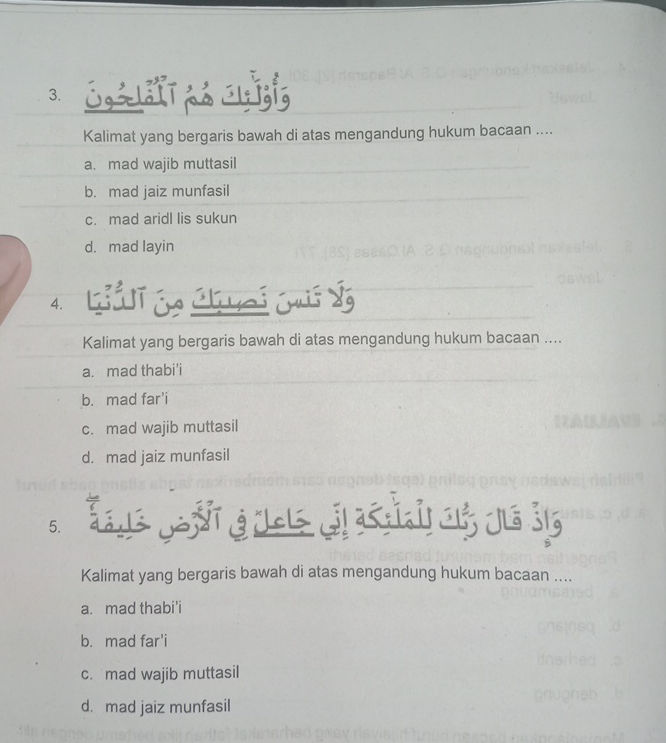 3. وَأُولَٰئِكَ هُمُ ٱلْمُفْلِحُونَ
Kalimat yang bergaris bawah di atas mengandung hukum bacaan ....
a. mad wajib muttasil
b. mad jaiz munfasil
c. mad aridl lis sukun
d. mad layin
4. وَلَا تَنسَ نَصِيبَكَ مِنَ ٱلدُّنْيَا
Kalimat yang bergaris bawah di atas mengandung hukum bacaan ....
a. mad thabi'i
b. mad far'i
c. mad wajib muttasil
d. mad jaiz munfasil
5. وَإِذْ قَالَ رَبُّكَ لِلْمَلَٰئِكَةِ إِنِّي جَاعِلٌ فِي ٱلْأَرْضِ خَلِيفَةً
Kalimat yang bergaris bawah di atas mengandung hukum bacaan ....
a. mad thabi'i
b. mad far'i
c. mad wajib muttasil
d. mad jaiz munfasil